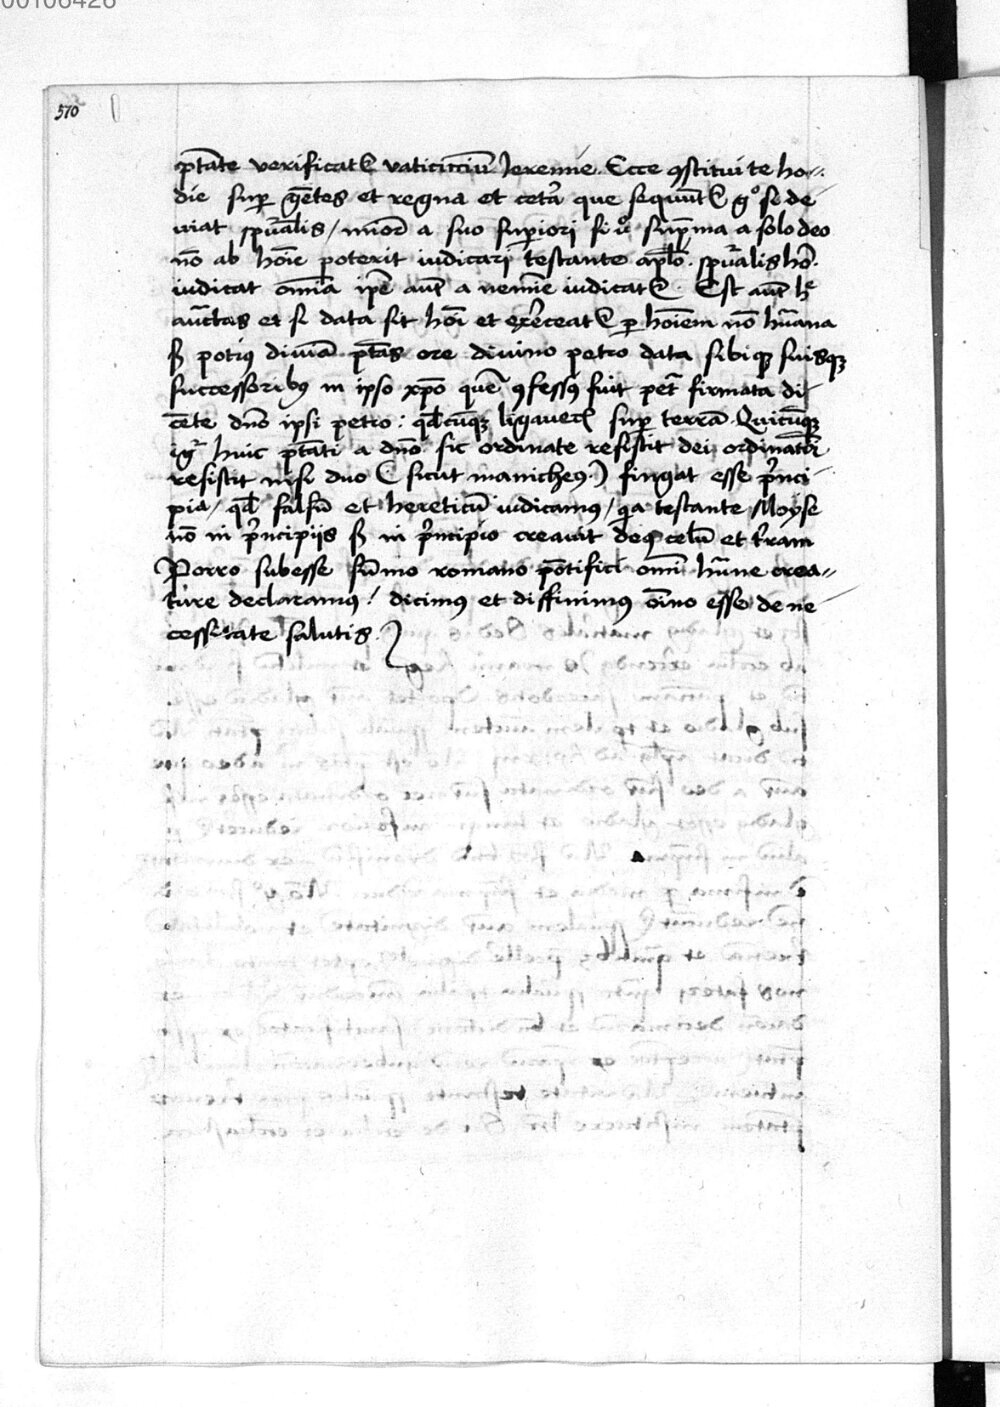 00106426
570
ptāte verificatr vaticiniū Jeremie. Ecce ꝯstitui te ho-
die suꝑ gētes et regna et cetā que sequūtr gͦ si de
viat spūalis / minor a suo suꝑiori si vͦ sup̄ma a solo deo
nō ab hoīe poterit iudicari testante apl̄o. spūalis hō
iudicat om̄ia ip̄e aūt a nemīe iudicatr. Est aūt hͨ
auctās et si data sit hoī et exerceatr ꝑ hoīem nō hūana
sꝫ potiꝰ diuīa ptās ore diuino petro data sibiqꝫ suisqꝫ
successoribꝰ in ipso xpō quē ꝯfessꝰ fuit petͣ firmata di
cēte dnō ipsi petro: qd̄cūqꝫ ligaverꝭ suꝑ terrā. Quicūqꝫ
igͬ huic ptāti a dnō sic ordinate resistit dei ordinatōi
resistit nisi duo (sicut manicheꝰ) fingat esse p̄nci
pia / qd̄ falsū et hereticū iudicamꝰ / qͣ testante Moyse
nō in p̄ncipiis sꝫ in p̄ncipio creauit deꝰ celū et t̄ram
Porro subesse sūmo romano pōtifici om̄i hūane crea-
ture declaramꝰ / dicimꝰ et diffinimꝰ oīno esse de ne
cessitate salutis.